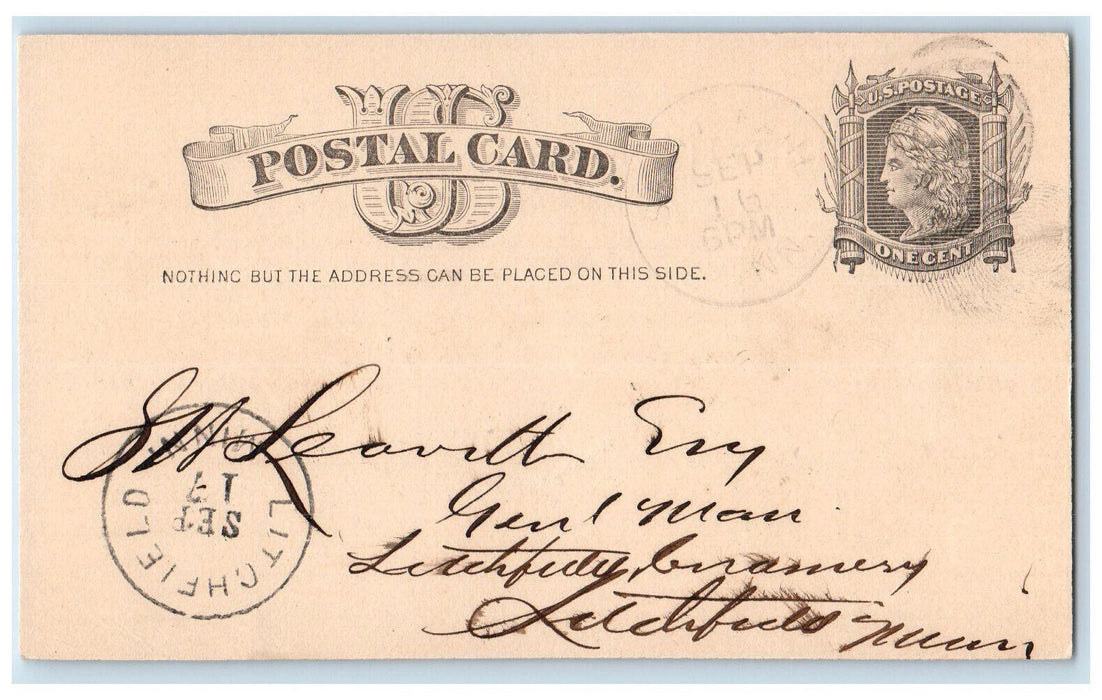 US
POSTAL CARD.
U.S. POSTAGE
ONE CENT
SEP
16
6PM
NOTHING BUT THE ADDRESS CAN BE PLACED ON THIS SIDE.
Leavitt Esq
Genl Man
Litchfield Cramery
Litchfield Minn
LITCHFIELD MINN
SEP
17